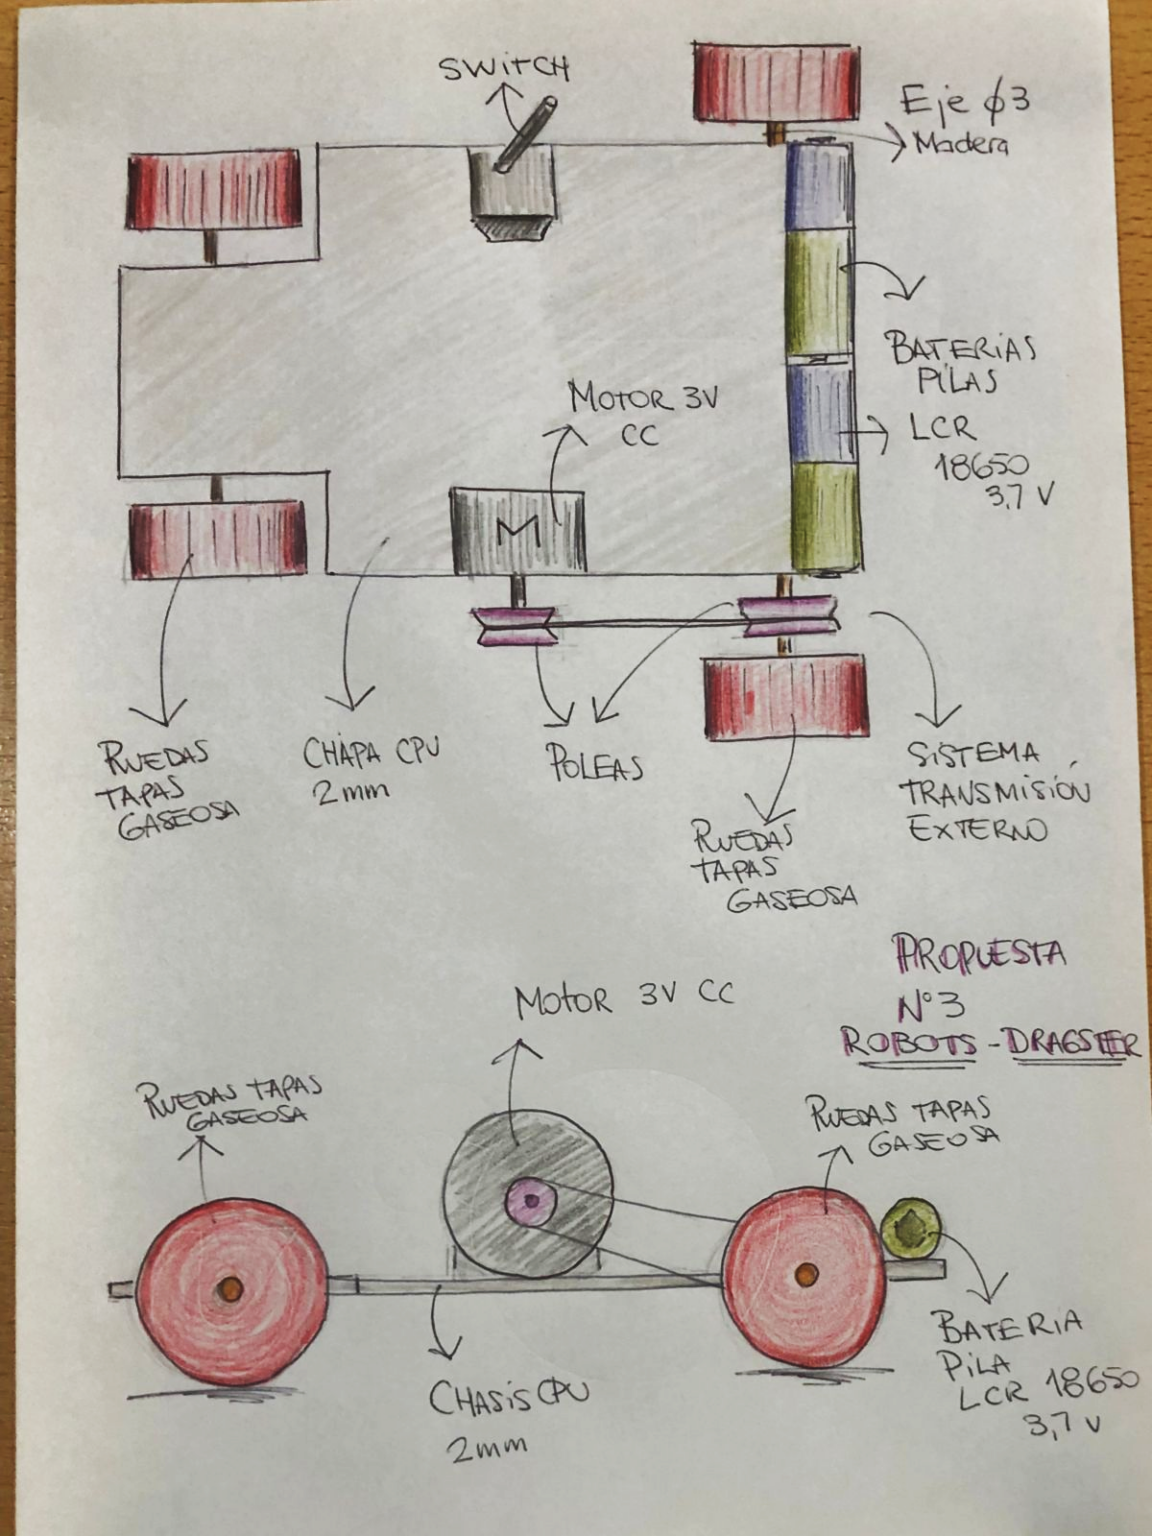 SWITCH
Eje ø3
Madera
BATERIAS
PILAS
LCR
18650
3,7 V
MOTOR 3V
CC
M
RUEDAS
TAPAS
GASEOSA
CHAPA CPU
2mm
POLEAS
SISTEMA
TRANSMISIÓN
EXTERNO
RUEDAS
TAPAS
GASEOSA
PROPUESTA
Nº3
ROBOTS - DRAGSTER
MOTOR 3V CC
RUEDAS TAPAS
GASEOSA
RUEDAS TAPAS
GASEOSA
BATERIA
PILA
LCR 18650
3,7 V
CHASIS CPU
2mm